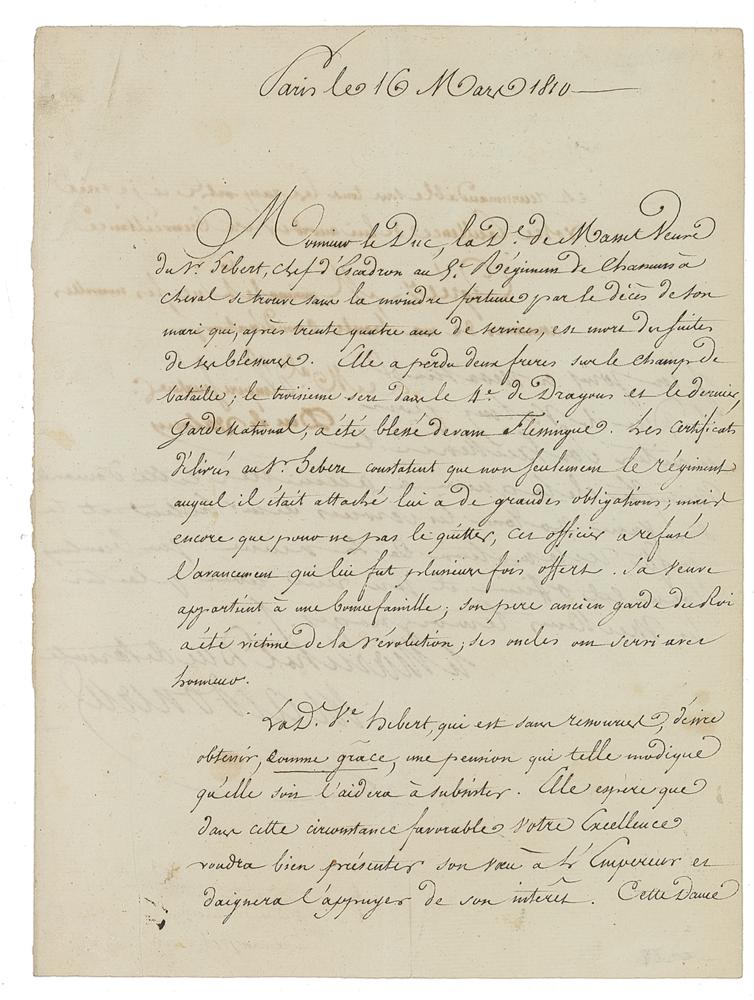 Paris le 16 Mars 1810
Monsieur le Duc, la De. de Masset Veuve
du Sr. hebert, chef d'Escadron au 5e. Régiment de Chasseurs à
cheval se trouve sans la moindre fortune par le décès de son
mari qui, après trente quatre ans de services, est mort des suites
de ses blessures. Elle a perdu deux freres sur le champ de
bataille; le troisieme sert dans le 4e. de Dragons et le dernier,
Garde National, a été blessé devant Flessingue. Les certificats
délivrés au Sr. hebert constatent que non seulement le régiment
auquel il était attaché lui a de grandes obligations; mais
encore que pour ne pas le quitter, cet officier a refusé
l'avancement qui lui fut plusieurs fois offert. Sa veuve
appartient à une bonne famille; son pere ancien garde du Roi
a été victime de la révolution; ses oncles ont servi avec
honneur.
La De. Ve. hebert, qui est sans ressources, désire
obtenir, comme grâce, une pension qui telle modique
qu'elle soit l'aidera à subsister. Elle espère que
dans cette circonstance favorable Votre Excellence
voudra bien présenter son vœu à L'Empereur et
daignera l'appuyer de son intérêt. Cette Dame